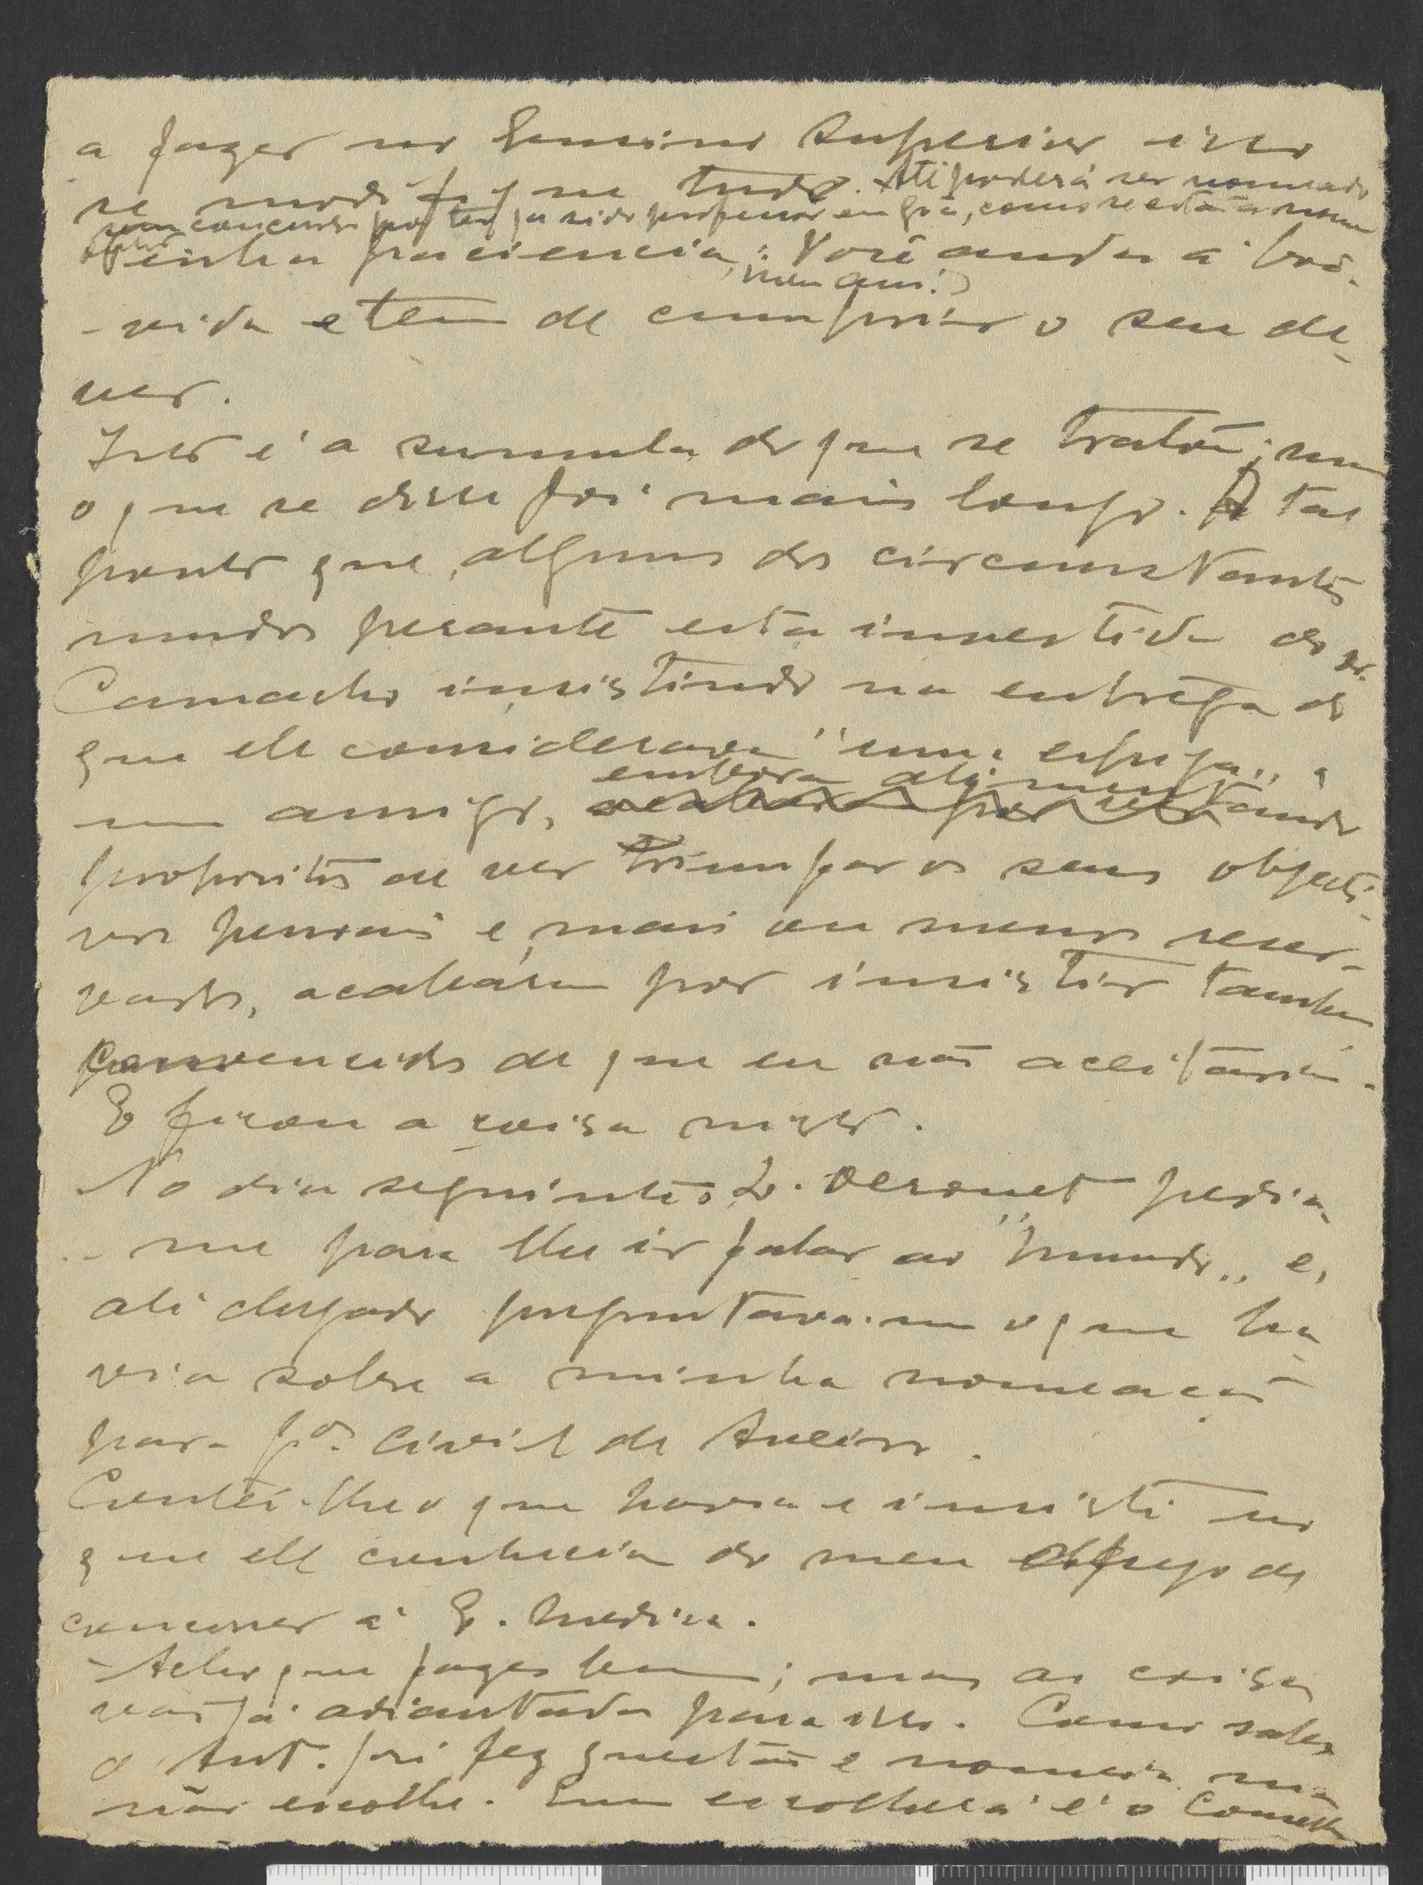 a fazer no Ensino Superior isso
se modifique tudo. Até poderá ser nomeado
sem concurso por ter já sido professor em Goa, como se está a
Tenha paciencia, meu am.º! Você anda á boa-
-vida e tem de cumprir o seu de-
ver.
Isto é a summula do que se tratou; mas
o que se disse foi mais longo. A tal
ponto que, alguns dos circumstantes
mudos perante esta investida do dr.
Camacho insistindo na entrega do
que ele considerava "uma espiga" a
um amigo, embora alimentando
propositos de ver triumfar os seus objecti-
vos pessoais e, mais ou menos reser-
vados, acabáram por insistir tambem
convencidos de que eu não aceitaria.
E ficou a coisa nisto.
No dia seguinte o L. Derouet pedia-
-me para lhe ir falar ao "Mundo" e,
ali chegado preguntava-me o que ha-
via sobre a minha nomeação
para g.or civil de Aveiro.
Contei-lhe o que havia e insisti no
que ele conhecia do meu desejo de
concorrer á E. Medica.
- Acho que fazes bem; mas as coisas
vão já adiantadas para isso. Como sabes
o Ant. José fez questão e nomeia mas
não escolhe. Quem escolherá é o